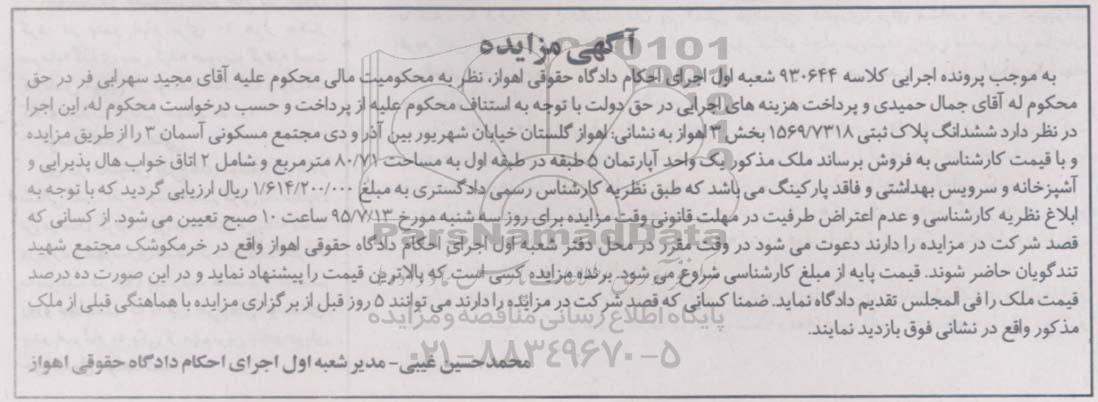 آگهی مزایده
به موجب پرونده اجرایی کلاسه ۹۳۰۶۴۴ شعبه اول اجرای احکام دادگاه حقوقی اهواز، نظر به محکومیت مالی محکوم علیه آقای مجید سهرابی فر در حق
محکوم له آقای جمال حمیدی و پرداخت هزینه های اجرایی در حق دولت با توجه به استنکاف محکوم علیه از پرداخت و حسب درخواست محکوم له، این اجرا
در نظر دارد ششدانگ پلاک ثبتی ۱۵۶۹/۷۳۱۸ بخش ۳ اهواز به نشانی: اهواز گلستان خیابان شهریور بین آذر و دی مجتمع مسکونی آسمان ۳ را از طریق مزایده
و با قیمت کارشناسی به فروش برساند ملک مذکور یک واحد آپارتمان ۵ طبقه در طبقه اول به مساحت ۸۰/۷۱ مترمربع و شامل ۲ اتاق خواب هال پذیرایی و
آشپزخانه و سرویس بهداشتی و فاقد پارکینگ می باشد که طبق نظریه کارشناس رسمی دادگستری به مبلغ ۱/۶۱۴/۲۰۰/۰۰۰ ریال ارزیابی گردید که با توجه به
ابلاغ نظریه کارشناسی و عدم اعتراض طرفیت در مهلت قانونی وقت مزایده برای روز سه شنبه مورخ ۹۵/۷/۱۳ ساعت ۱۰ صبح تعیین می شود. از کسانی که
قصد شرکت در مزایده را دارند دعوت می شود در وقت مقرر در محل دفتر شعبه اول اجرای احکام دادگاه حقوقی اهواز واقع در خرمکوشک مجتمع شهید
تندگویان حاضر شوند. قیمت پایه از مبلغ کارشناسی شروع می شود. برنده مزایده کسی است که بالاترین قیمت را پیشنهاد نماید و در این صورت ده درصد
قیمت ملک را فی المجلس تقدیم دادگاه نماید. ضمنا کسانی که قصد شرکت در مزایده را دارند می توانند ۵ روز قبل از برگزاری مزایده با هماهنگی قبلی از ملک
مذکور واقع در نشانی فوق بازدید نمایند.
محمدحسین غیبی- مدیر شعبه اول اجرای احکام دادگاه حقوقی اهواز
ParsNamadData
پایگاه اطلاع رسانی مناقصه و مزایده
۰۲۱-۸۸۳۴۹۶۷۰-۵